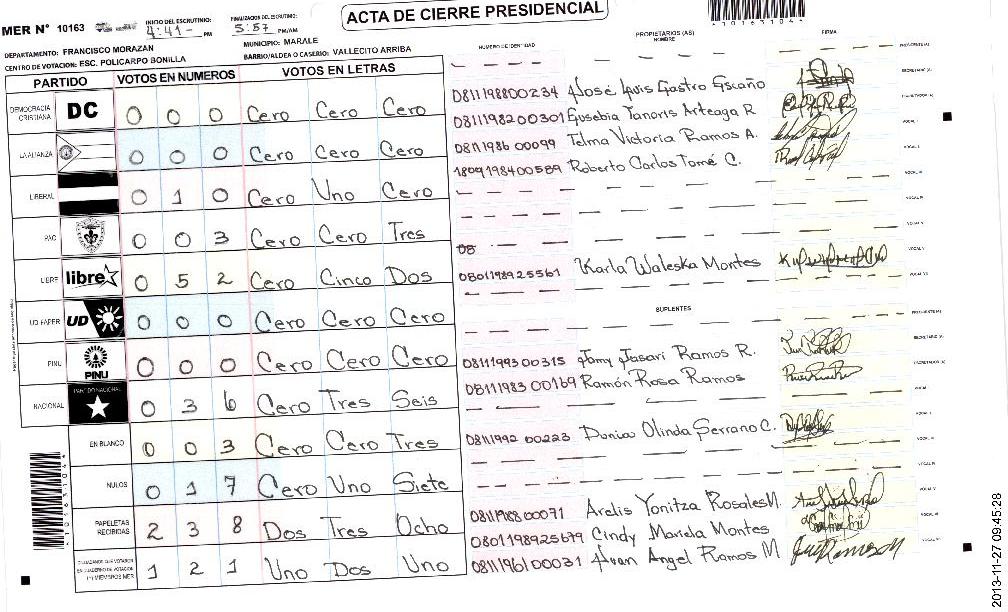 ACTA DE CIERRE PRESIDENCIAL
MER N° 10163 INICIO DEL ESCRUTINIO: 4:41- PM FINALIZACION DEL ESCRUTINIO: 5:57 PM/AM
DEPARTAMENTO: FRANCISCO MORAZAN MUNICIPIO: MARALE
CENTRO DE VOTACION: ESC. POLICARPO BONILLA BARRIO/ALDEA O CASERIO: VALLECITO ARRIBA
PARTIDO VOTOS EN NUMEROS VOTOS EN LETRAS
DEMOCRACIA CRISTIANA DC 0 0 0 Cero Cero Cero
LA ALIANZA 0 0 0 Cero Cero Cero
LIBERAL 0 1 0 Cero Uno Cero
PAC 0 0 3 Cero Cero Tres
LIBRE libre 0 5 2 Cero Cinco Dos
UD FAPER UD 0 0 0 Cero Cero Cero
PINU PINU 0 0 0 Cero Cero Cero
NACIONAL PARTIDO NACIONAL 0 3 6 Cero Tres Seis
EN BLANCO 0 0 3 Cero Cero Tres
NULOS 0 1 7 Cero Uno Siete
PAPELETAS RECIBIDAS 2 3 8 Dos Tres Ocho
1 2 1 Uno Dos Uno
PROPIETARIOS (AS)
NUMERO DE IDENTIDAD NOMBRE FIRMA
0811198800234 José Luis Castro Escaño
0811198200301 Eusebia Tanoris Arteaga R
0811198600099 Telma Victoria Ramos A.
1809198400589 Roberto Carlos Tomé C.
08
0801198925561 Karla Waleska Montes
SUPLENTES
0811199300315 Jamy Jasari Ramos R.
0811198300169 Ramón Rosa Ramos
0811199200223 Dunia Olinda Serrano C.
0811198800071 Arelis Yonitza Rosales M.
0801198925679 Cindy Mariela Montes
0811196100031 Juan Angel Ramos M
2013-11-27 09:45:28